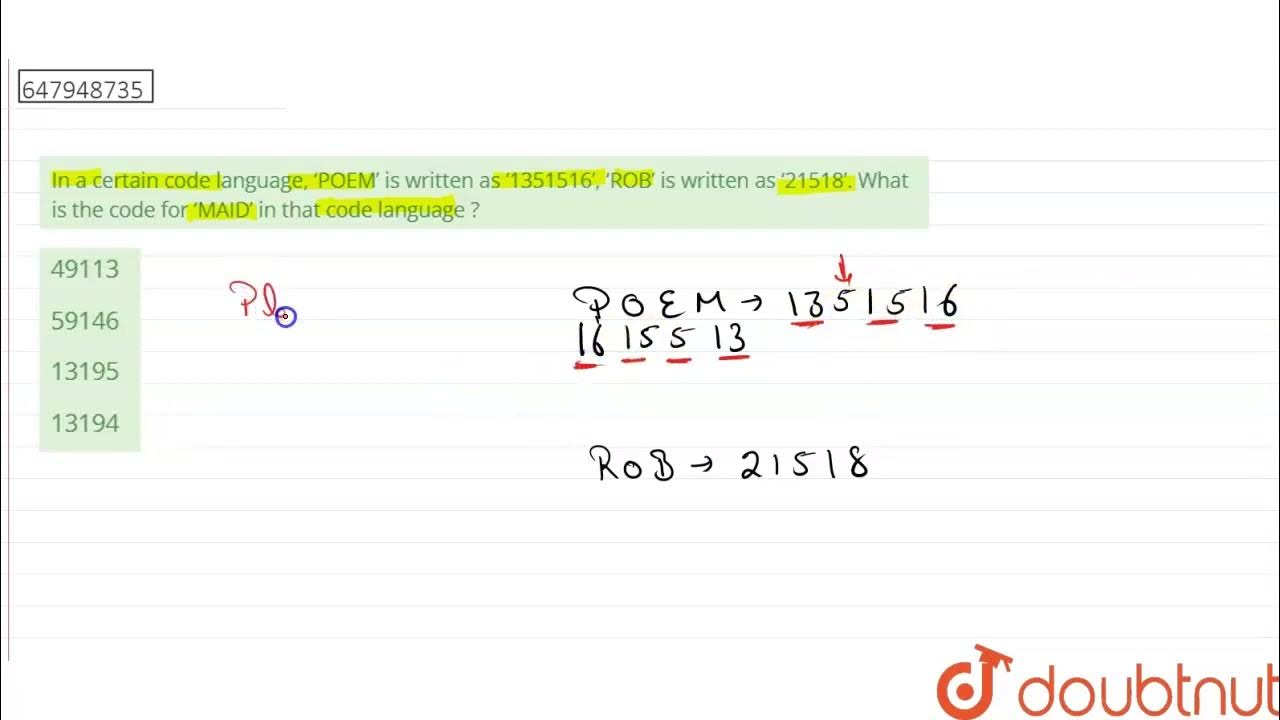 647948735
In a certain code language, ‘POEM’ is written as ‘1351516’, ‘ROB’ is written as ‘21518’. What
is the code for ‘MAID’ in that code language ?
49113
59146
13195
13194
POEM → 1351516
16 15 5 13
ROB → 21518
doubtnut